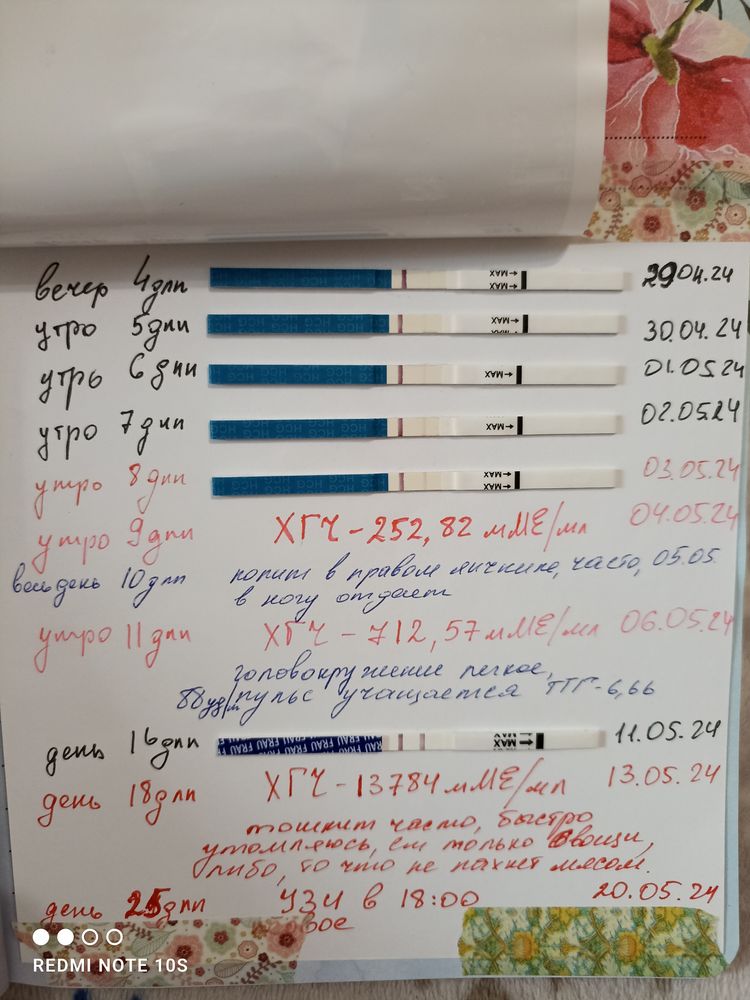 вечер 4дпп ←MAX ←MAX 29.04.24
утро 5дпп HCG HCG HCG ←MAX 30.04.24
утрь 6дпп HCG HCG HCG MAX← 01.05.24
утро 7дпп HCG HCG HCG MAX← 02.05.24
утро 8дпп HCG HCG HCG ←MAX ←MAX 03.05.24
утро 9дпп ХГЧ-252,82 мМЕ/мл 04.05.24
весь день 10дпп колит в правом яичнике, часто, 05.05.
в ногу отдает
утро 11дпп ХГЧ-712,57 мМЕ/мл 06.05.24
головокружение легкое,
88уд/м пульс учащается ТТГ-6,66
день 16дпп FRAU FRAU FRAU FRAU MAX 11.05.24
день 18дпп ХГЧ-13784 мМЕ/мл 13.05.24
тошнит часто, быстро
утомляюсь, ем только овощи,
либо, то что не пахнет мясом.
день 25дпп УЗИ в 18:00 20.05.24
вое
REDMI NOTE 10S